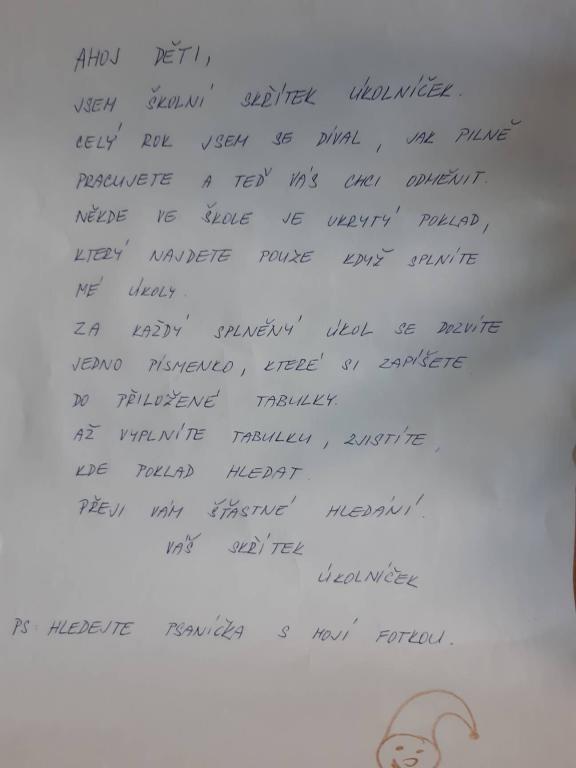 AHOJ DĚTI,
JSEM ŠKOLNÍ SKŘÍTEK ÚKOLNÍČEK.
CELÝ ROK JSEM SE DÍVAL, JAK PILNĚ
PRACUJETE A TEĎ VÁS CHCI ODMĚNIT.
NĚKDE VE ŠKOLE JE UKRYTÝ POKLAD,
KTERÝ NAJDETE POUZE KDYŽ SPLNÍTE
MÉ ÚKOLY.
ZA KAŽDÝ SPLNĚNÝ ÚKOL SE DOZVÍTE
JEDNO PÍSMENKO, KTERÉ SI ZAPÍŠETE
DO PŘILOŽENÉ TABULKY.
AŽ VYPLNÍTE TABULKU, ZJISTÍTE,
KDE POKLAD HLEDAT.
PŘEJI VÁM ŠŤASTNÉ HLEDÁNÍ.
VÁŠ SKŘÍTEK
ÚKOLNÍČEK
PS: HLEDEJTE PSANÍČKA S MOJÍ FOTKOU.